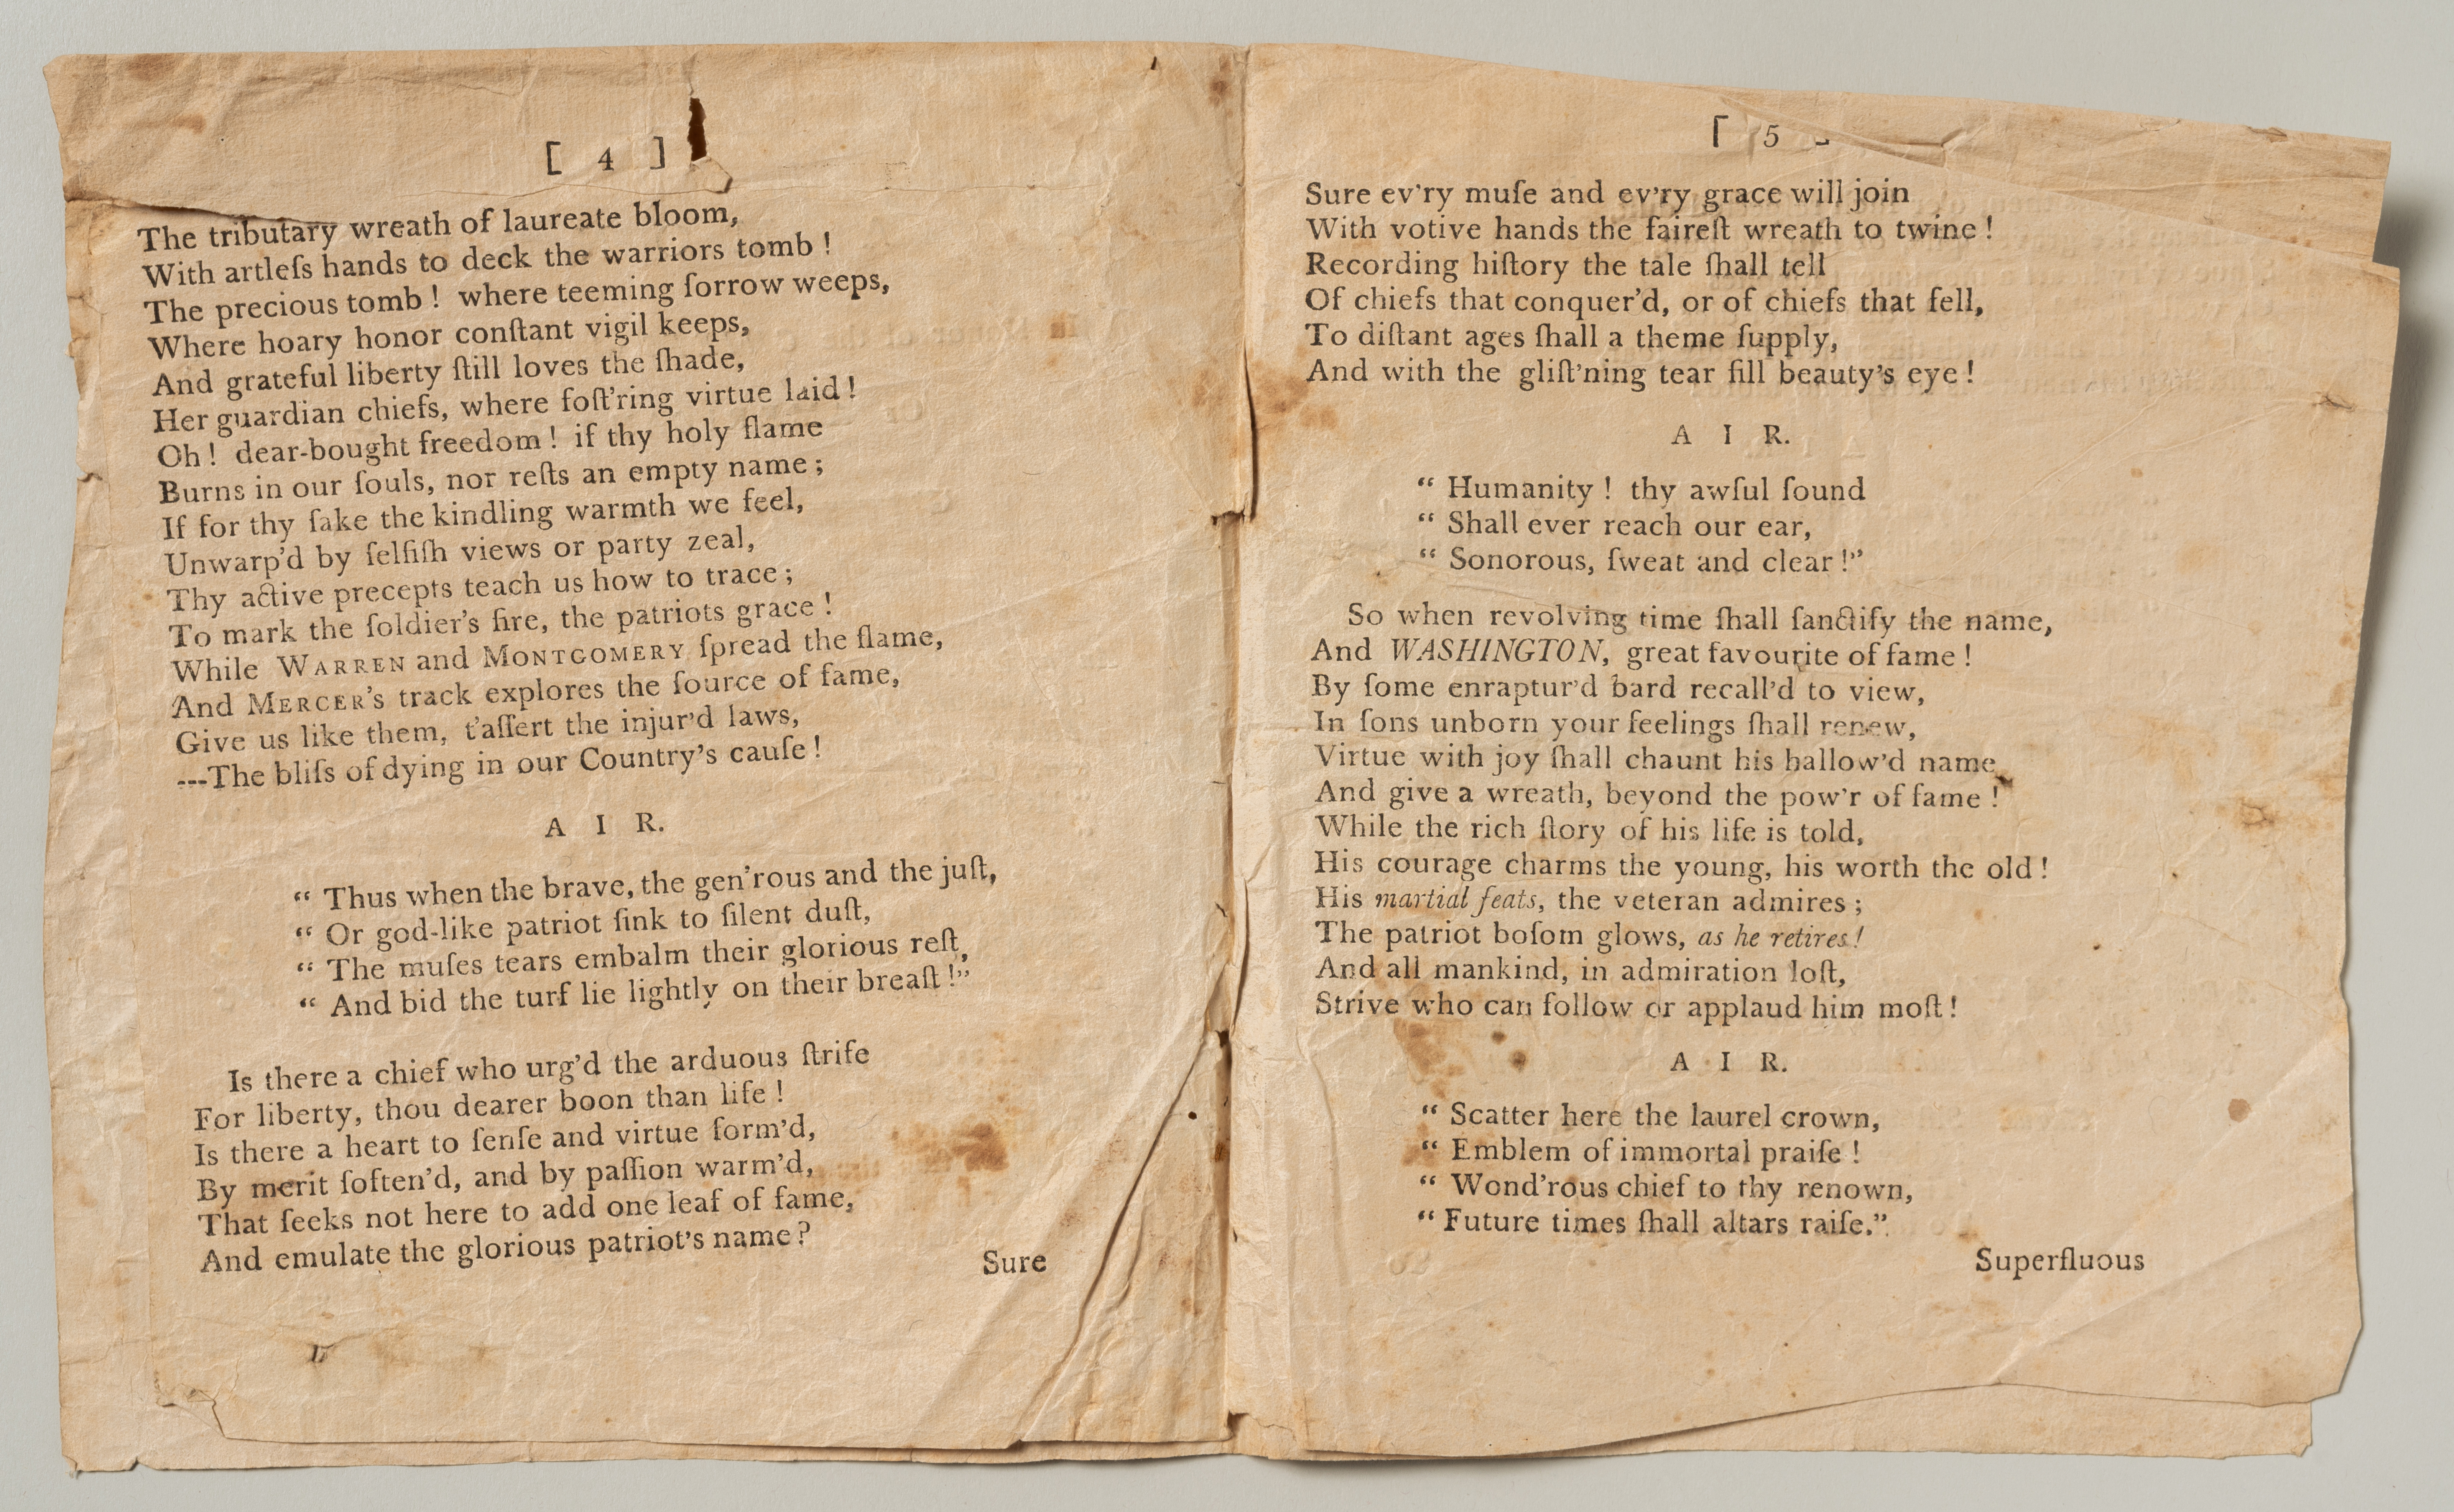 [ 4 ]
The tributary wreath of laureate bloom,
With artleſs hands to deck the warriors tomb !
The precious tomb ! where teeming ſorrow weeps,
Where hoary honor conſtant vigil keeps,
And grateful liberty ſtill loves the ſhade,
Her guardian chiefs, where foſt'ring virtue laid !
Oh ! dear-bought freedom ! if thy holy flame
Burns in our ſouls, nor reſts an empty name ;
If for thy ſake the kindling warmth we feel,
Unwarp'd by ſelfiſh views or party zeal,
Thy active precepts teach us how to trace ;
To mark the ſoldier's fire, the patriots grace !
While WARREN and MONTGOMERY ſpread the flame,
And MERCER'S track explores the ſource of fame,
Give us like them, t'aſſert the injur'd laws,
---The bliſs of dying in our Country's cauſe !
A I R.
“ Thus when the brave, the gen'rous and the juſt,
“ Or god-like patriot ſink to ſilent duſt,
“ The muſes tears embalm their glorious reſt,
“ And bid the turf lie lightly on their breaſt !”
Is there a chief who urg'd the arduous ſtrife
For liberty, thou dearer boon than life !
Is there a heart to ſenſe and virtue form'd,
By merit ſoften'd, and by paſſion warm'd,
That ſeeks not here to add one leaf of fame,
And emulate the glorious patriot's name ?
Sure
[ 5
Sure ev'ry muſe and ev'ry grace will join
With votive hands the faireſt wreath to twine !
Recording hiſtory the tale ſhall tell
Of chiefs that conquer'd, or of chiefs that fell,
To diſtant ages ſhall a theme ſupply,
And with the gliſt'ning tear fill beauty's eye !
A I R.
“ Humanity ! thy awſul ſound
“ Shall ever reach our ear,
“ Sonorous, ſweat and clear !”
So when revolving time ſhall ſanctify the name,
And WASHINGTON, great favourite of fame !
By ſome enraptur'd bard recall'd to view,
In ſons unborn your feelings ſhall renew,
Virtue with joy ſhall chaunt his hallow'd name
And give a wreath, beyond the pow'r of fame !
While the rich ſtory of his life is told,
His courage charms the young, his worth the old !
His martial feats, the veteran admires ;
The patriot boſom glows, as he retires !
And all mankind, in admiration loſt,
Strive who can follow or applaud him moſt !
A I R.
“ Scatter here the laurel crown,
“ Emblem of immortal praiſe !
“ Wond'rous chief to thy renown,
“ Future times ſhall altars raiſe.”
Superfluous